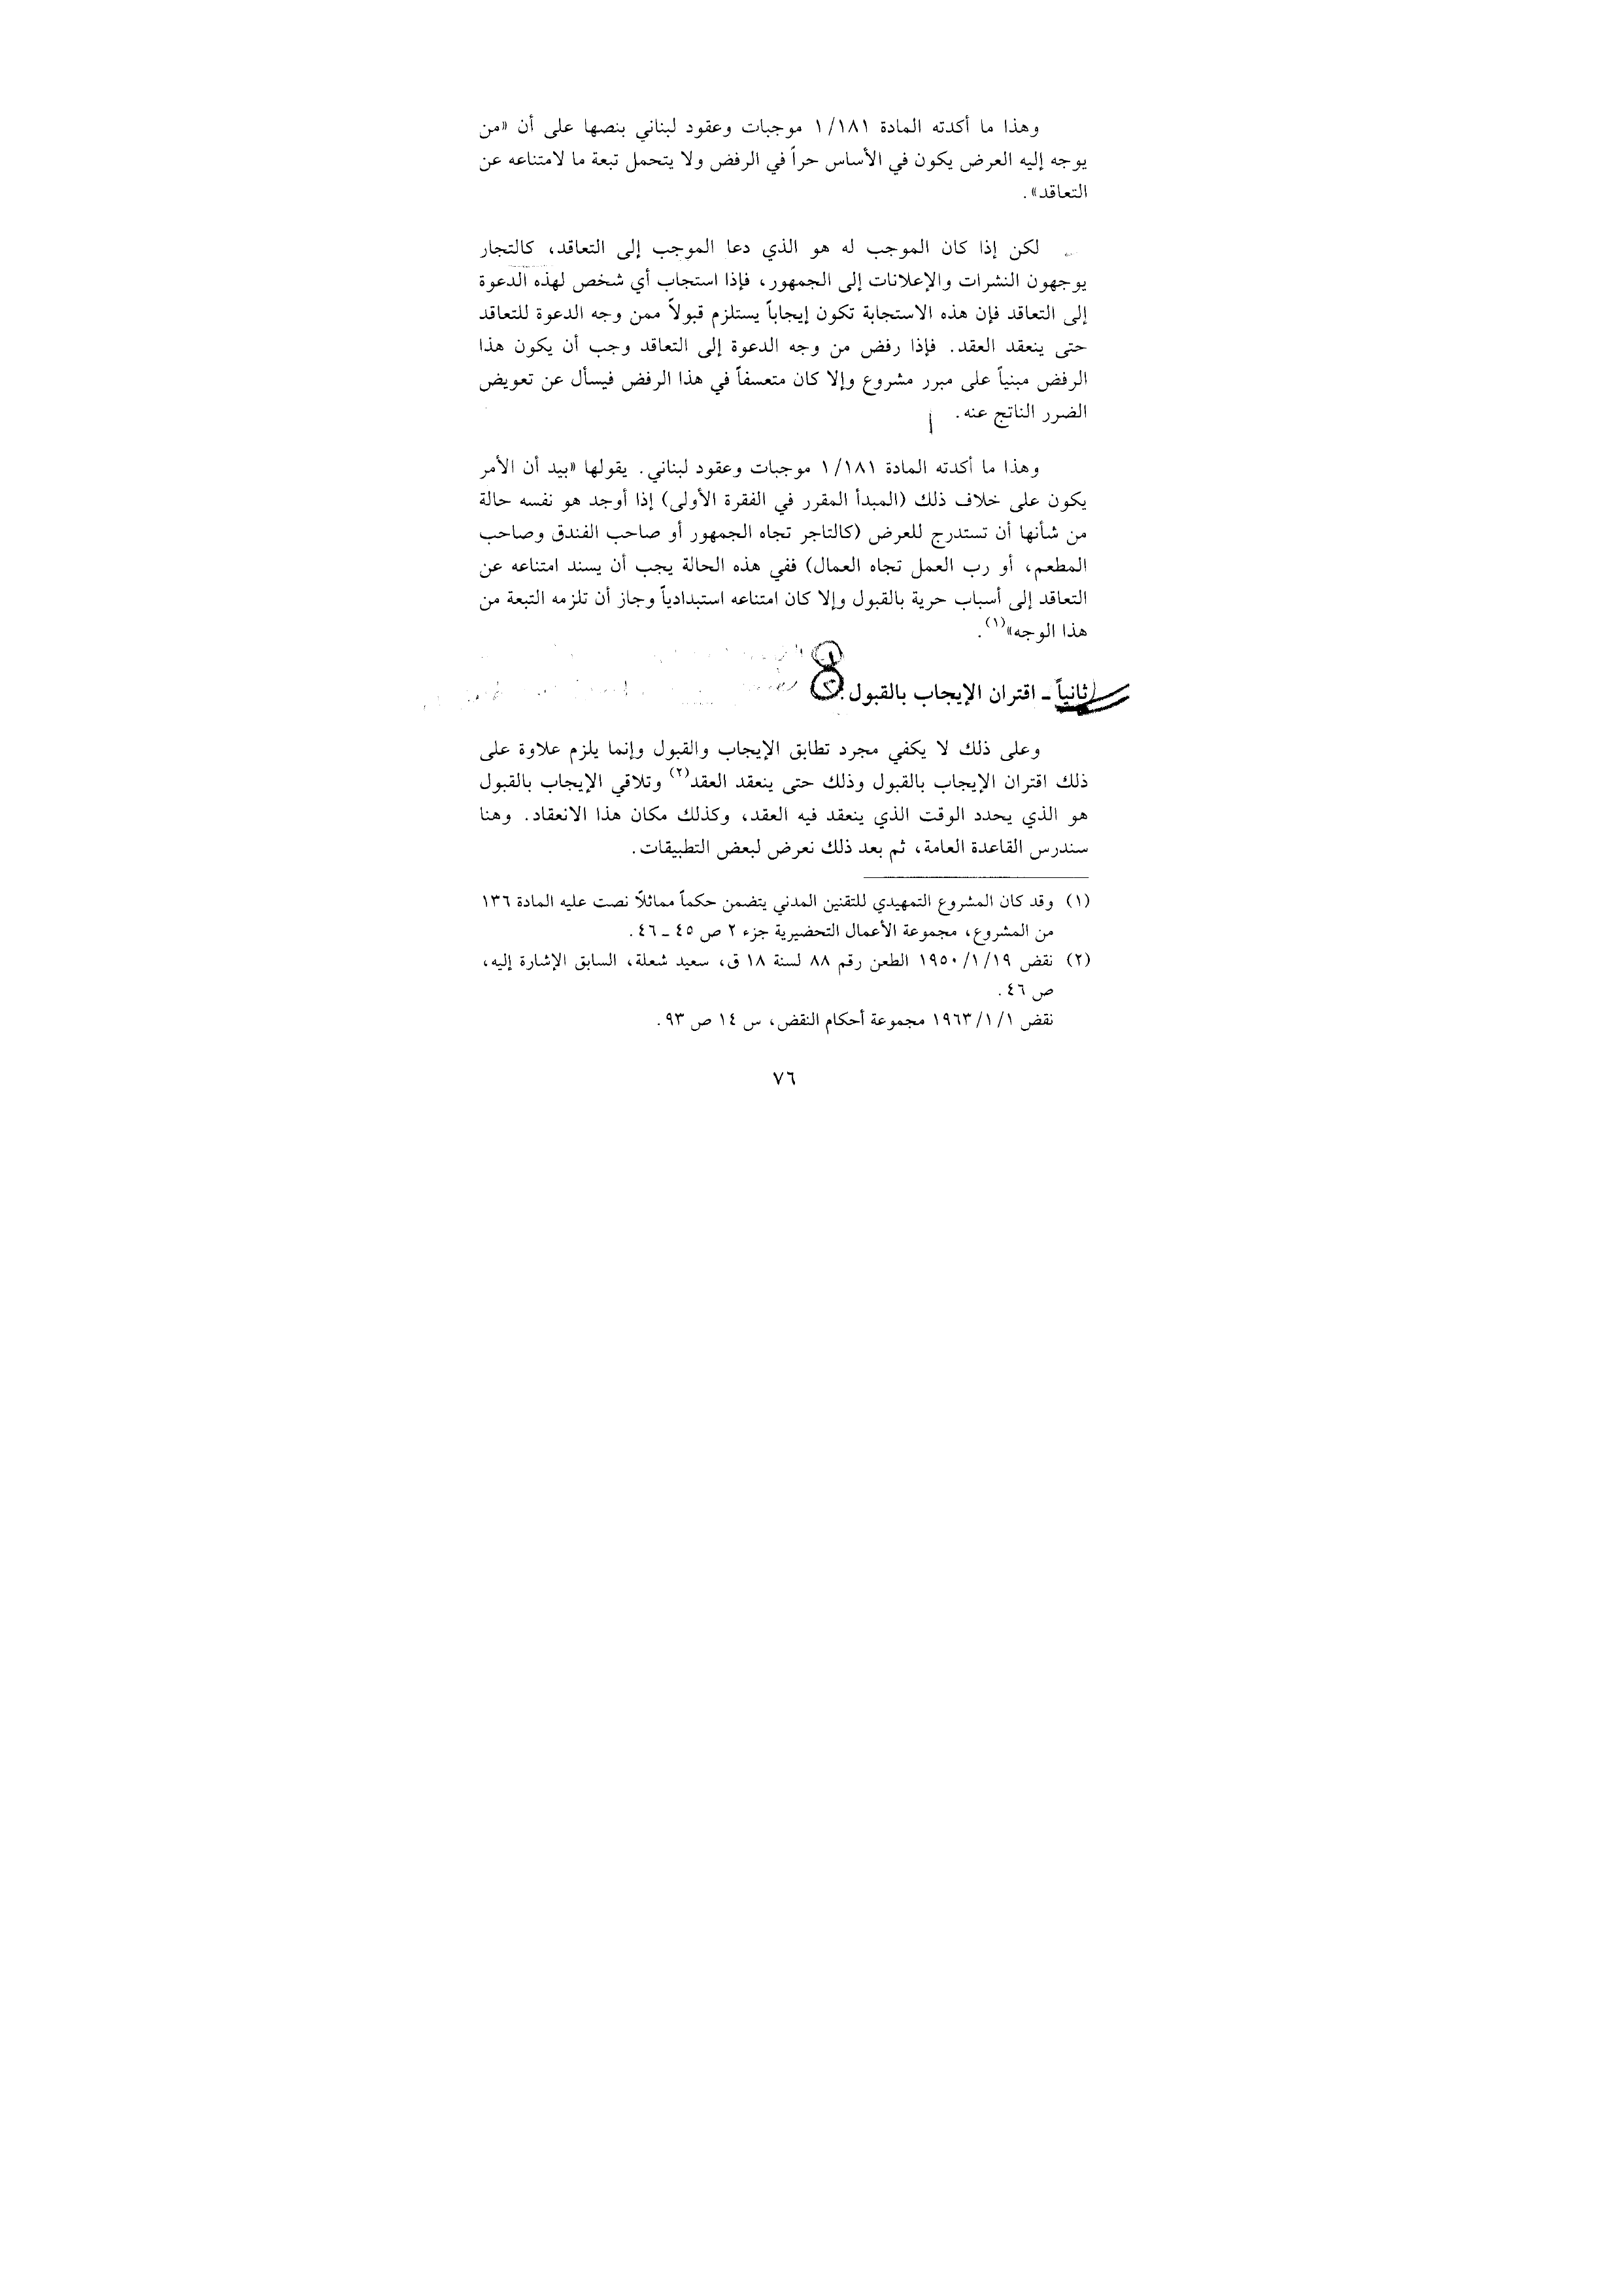 وهذا ما أكدته المادة ١/١٨١ موجبات وعقود لبناني بنصها على أن «من
يوجه إليه العرض يكون في الأساس حراً في الرفض ولا يتحمل تبعة ما لامتناعه عن
التعاقد».
لكن إذا كان الموجب له هو الذي دعا الموجب إلى التعاقد، كالتجار
يوجهون النشرات والإعلانات إلى الجمهور، فإذا استجاب أي شخص لهذه الدعوة
إلى التعاقد فإن هذه الاستجابة تكون إيجاباً يستلزم قبولاً ممن وجه الدعوة للتعاقد
حتى ينعقد العقد. فإذا رفض من وجه الدعوة إلى التعاقد وجب أن يكون هذا
الرفض مبنياً على مبرر مشروع وإلا كان متعسفاً في هذا الرفض فيسأل عن تعويض
الضرر الناتج عنه.
وهذا ما أكدته المادة ١/١٨١ موجبات وعقود لبناني. يقولها «بيد أن الأمر
يكون على خلاف ذلك (المبدأ المقرر في الفقرة الأولى) إذا أوجد هو نفسه حالة
من شأنها أن تستدرج للعرض (كالتاجر تجاه الجمهور أو صاحب الفندق وصاحب
المطعم، أو رب العمل تجاه العمال) ففي هذه الحالة يجب أن يسند امتناعه عن
التعاقد إلى أسباب حرية بالقبول وإلا كان امتناعه استبدادياً وجاز أن تلزمه التبعة من
هذا الوجه»(١).
ثانياً ـ اقتران الإيجاب بالقبول:
وعلى ذلك لا يكفي مجرد تطابق الإيجاب والقبول وإنما يلزم علاوة على
ذلك اقتران الإيجاب بالقبول وذلك حتى ينعقد العقد(٢) وتلاقي الإيجاب بالقبول
هو الذي يحدد الوقت الذي ينعقد فيه العقد، وكذلك مكان هذا الانعقاد. وهنا
سندرس القاعدة العامة، ثم بعد ذلك نعرض لبعض التطبيقات.
(١) وقد كان المشروع التمهيدي للتقنين المدني يتضمن حكماً مماثلاً نصت عليه المادة ١٣٦
من المشروع، مجموعة الأعمال التحضيرية جزء ٢ ص ٤٥ ـ ٤٦.
(٢) نقض ١٩٥٠/١/١٩ الطعن رقم ٨٨ لسنة ١٨ ق، سعيد شعلة، السابق الإشارة إليه،
ص ٤٦.
نقض ١٩٦٣/١/١ مجموعة أحكام النقض، س ١٤ ص ٩٣.
٧٦